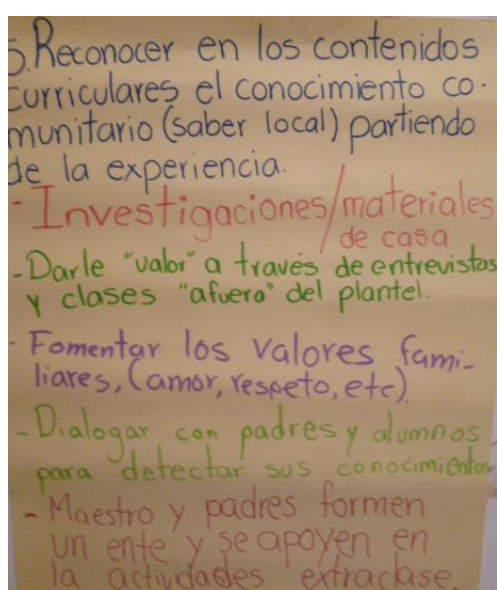 5. Reconocer en los contenidos
curriculares el conocimiento co-
munitario (saber local) partiendo
de la experiencia.
- Investigaciones/materiales
de casa
- Darle "valor" a través de entrevistas
y clases "afuera" del plantel.
- Fomentar los valores fami-
liares, (amor, respeto, etc)
- Dialogar con padres y alumnos
para detectar sus conocimientos
- Maestro y padres formen
un ente y se apoyen en
la actividades extraclase.